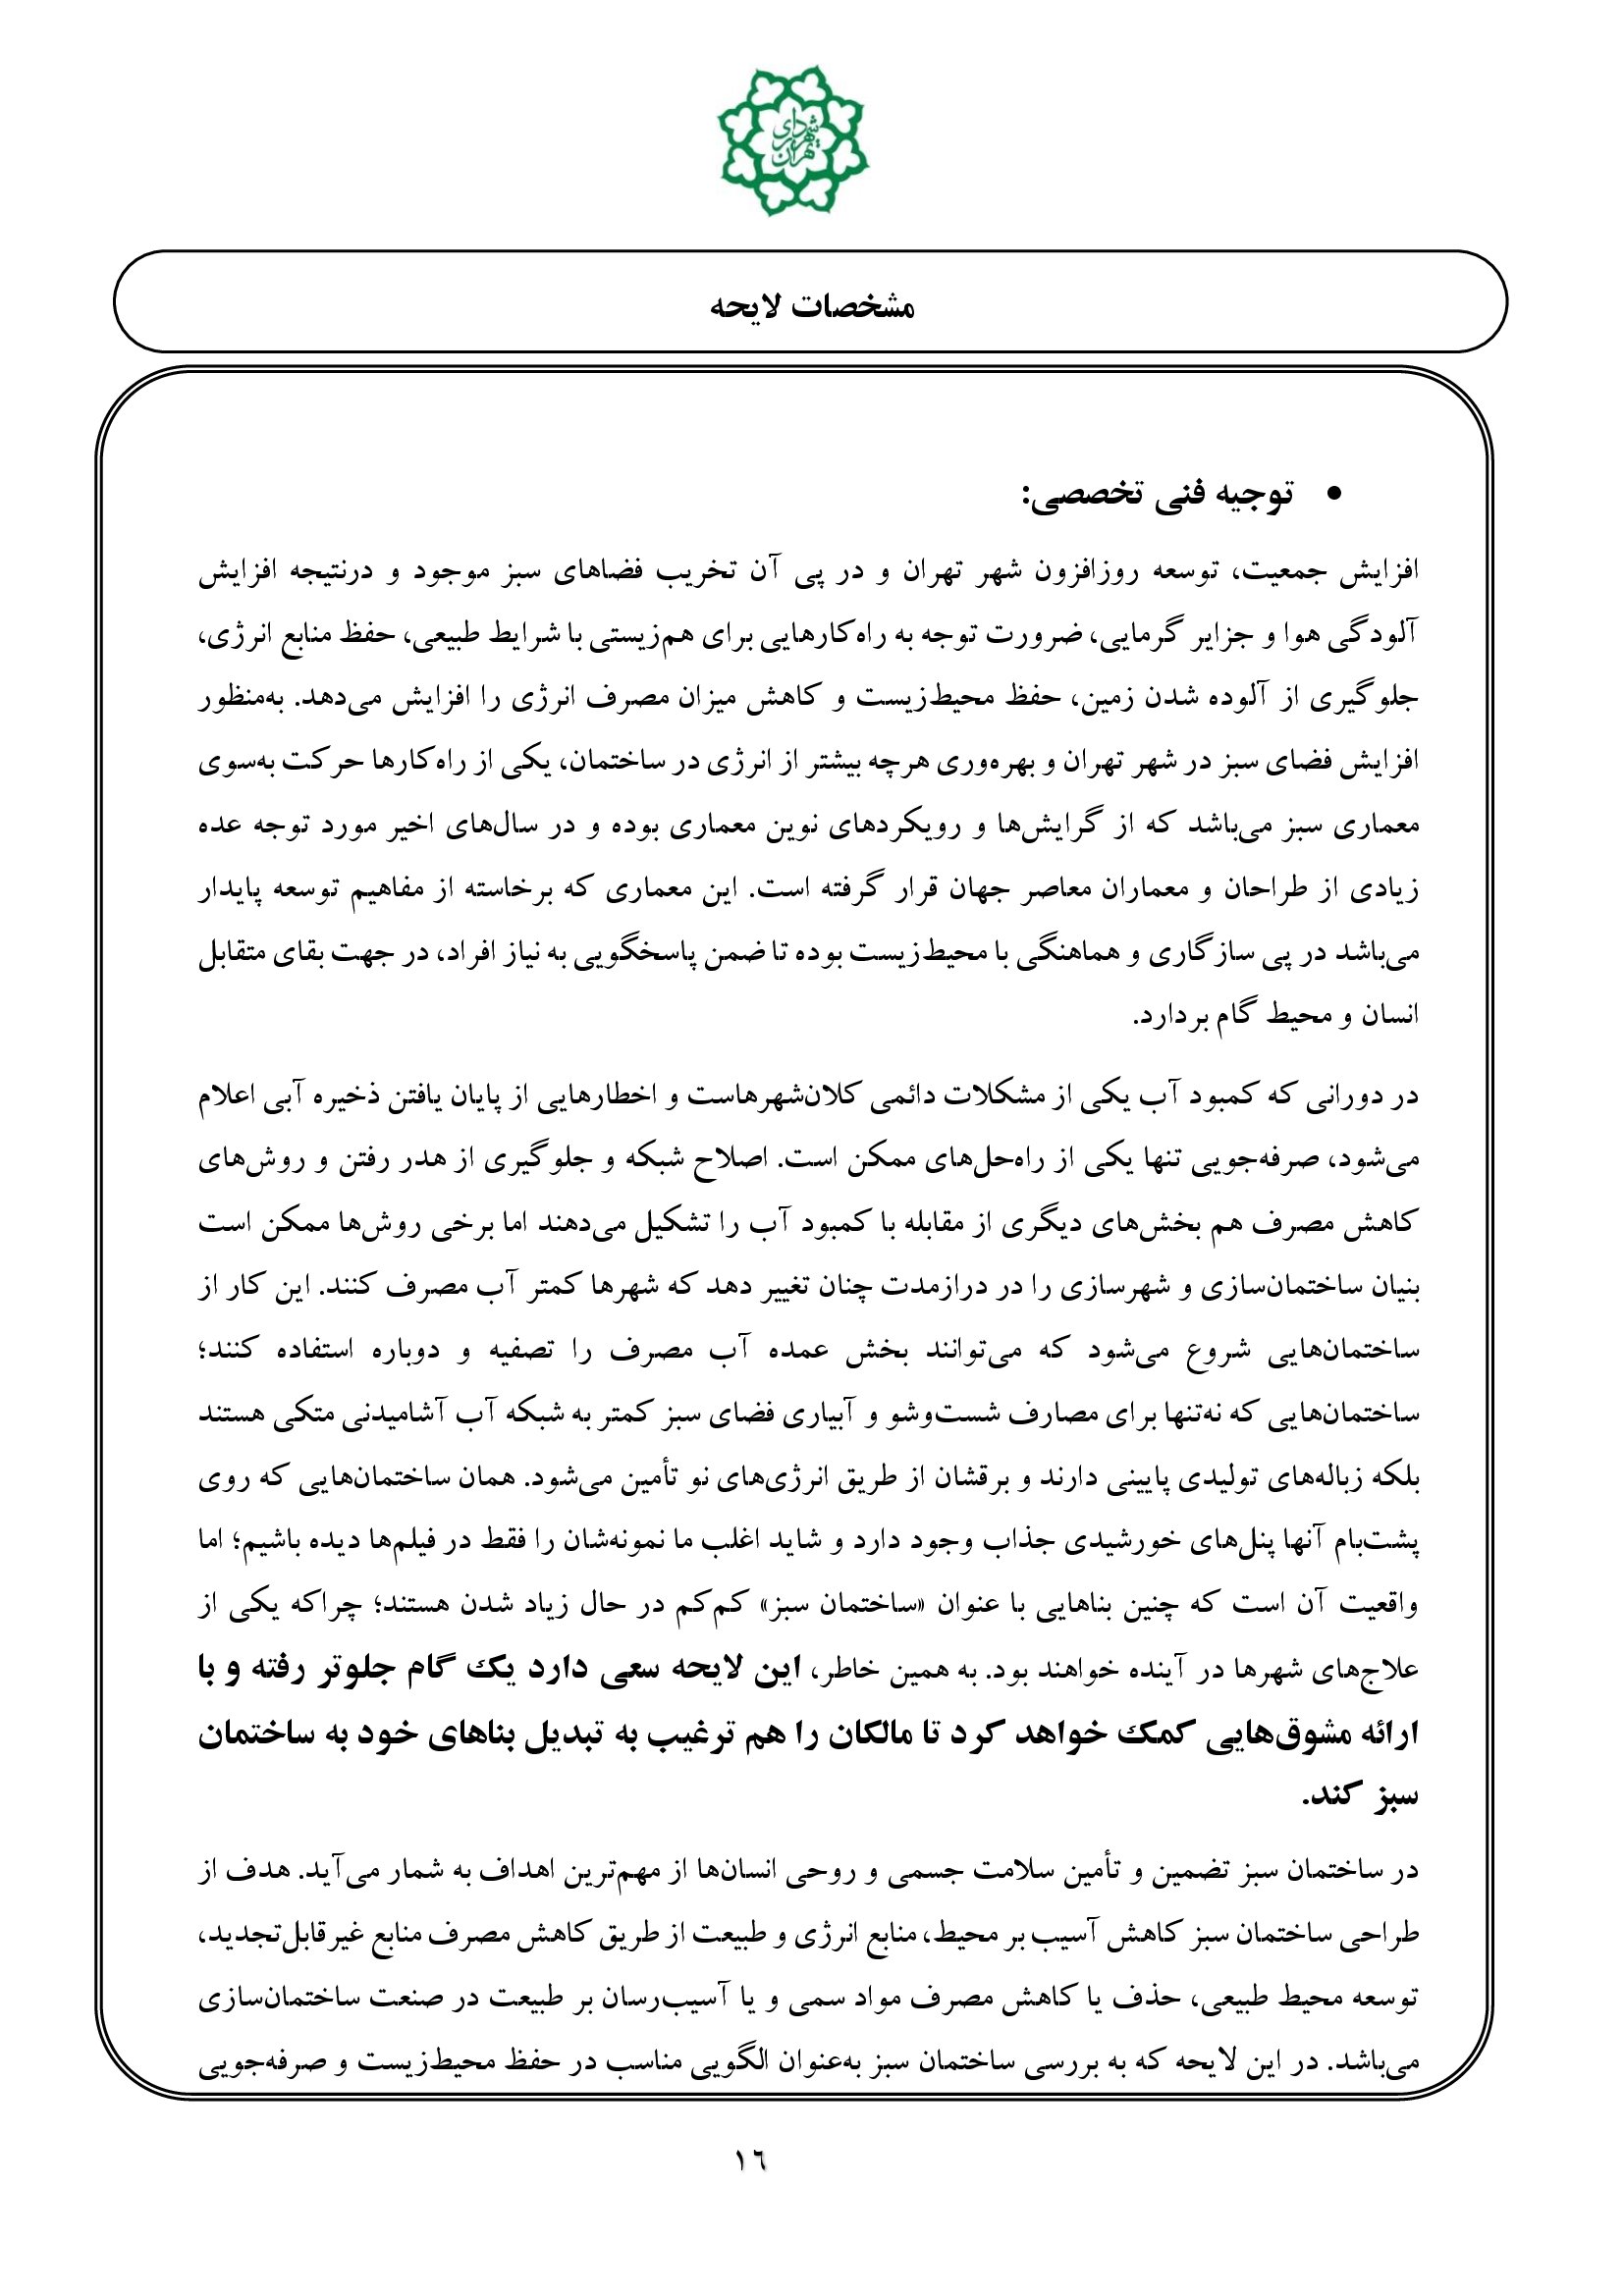 شهرداری
تهران
مشخصات لایحه
• توجیه فنی تخصصی:
افزایش جمعیت، توسعه روزافزون شهر تهران و در پی آن تخریب فضاهای سبز موجود و درنتیجه افزایش
آلودگی هوا و جزایر گرمایی، ضرورت توجه به راه‌کارهایی برای هم‌زیستی با شرایط طبیعی، حفظ منابع انرژی،
جلوگیری از آلوده شدن زمین، حفظ محیط‌زیست و کاهش میزان مصرف انرژی را افزایش می‌دهد. به‌منظور
افزایش فضای سبز در شهر تهران و بهره‌وری هرچه بیشتر از انرژی در ساختمان، یکی از راه‌کارها حرکت به‌سوی
معماری سبز می‌باشد که از گرایش‌ها و رویکردهای نوین معماری بوده و در سال‌های اخیر مورد توجه عده
زیادی از طراحان و معماران معاصر جهان قرار گرفته است. این معماری که برخاسته از مفاهیم توسعه پایدار
می‌باشد در پی سازگاری و هماهنگی با محیط‌زیست بوده تا ضمن پاسخگویی به نیاز افراد، در جهت بقای متقابل
انسان و محیط گام بردارد.
در دورانی که کمبود آب یکی از مشکلات دائمی کلان‌شهرهاست و اخطارهایی از پایان یافتن ذخیره آبی اعلام
می‌شود، صرفه‌جویی تنها یکی از راه‌حل‌های ممکن است. اصلاح شبکه و جلوگیری از هدر رفتن و روش‌های
کاهش مصرف هم بخش‌های دیگری از مقابله با کمبود آب را تشکیل می‌دهند اما برخی روش‌ها ممکن است
بنیان ساختمان‌سازی و شهرسازی را در درازمدت چنان تغییر دهد که شهرها کمتر آب مصرف کنند. این کار از
ساختمان‌هایی شروع می‌شود که می‌توانند بخش عمده آب مصرف را تصفیه و دوباره استفاده کنند؛
ساختمان‌هایی که نه‌تنها برای مصارف شست‌وشو و آبیاری فضای سبز کمتر به شبکه آب آشامیدنی متکی هستند
بلکه زباله‌های تولیدی پایینی دارند و برقشان از طریق انرژی‌های نو تأمین می‌شود. همان ساختمان‌هایی که روی
پشت‌بام آنها پنل‌های خورشیدی جذاب وجود دارد و شاید اغلب ما نمونه‌شان را فقط در فیلم‌ها دیده باشیم؛ اما
واقعیت آن است که چنین بناهایی با عنوان «ساختمان سبز» کم‌کم در حال زیاد شدن هستند؛ چراکه یکی از
علاج‌های شهرها در آینده خواهند بود. به همین خاطر، این لایحه سعی دارد یک گام جلوتر رفته و با
ارائه مشوق‌هایی کمک خواهد کرد تا مالکان را هم ترغیب به تبدیل بناهای خود به ساختمان
سبز کند.
در ساختمان سبز تضمین و تأمین سلامت جسمی و روحی انسان‌ها از مهم‌ترین اهداف به شمار می‌آید. هدف از
طراحی ساختمان سبز کاهش آسیب بر محیط، منابع انرژی و طبیعت از طریق کاهش مصرف منابع غیرقابل‌تجدید،
توسعه محیط طبیعی، حذف یا کاهش مصرف مواد سمی و یا آسیب‌رسان بر طبیعت در صنعت ساختمان‌سازی
می‌باشد. در این لایحه که به بررسی ساختمان سبز به‌عنوان الگویی مناسب در حفظ محیط‌زیست و صرفه‌جویی
١٦